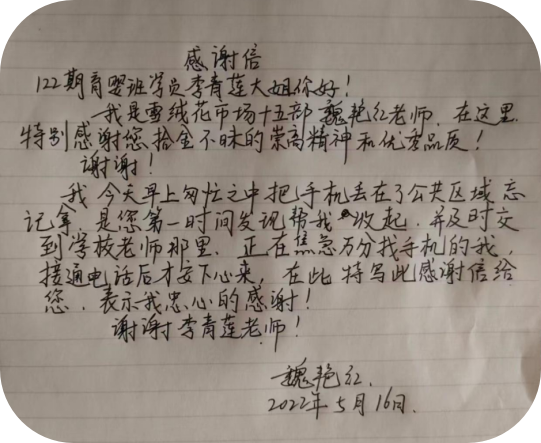 感谢信
122期育婴班学员李青莲大姐你好！
我是雪绒花市场十五部魏艳红老师，在这里
特别感谢您拾金不昧的崇高精神和优秀品质！
谢谢！
我今天早上匆忙之中把手机丢在了公共区域忘
记拿，是您第一时间发现帮我收起，并及时交
到学校老师那里，正在焦急万分找手机的我，
接通电话后才安下心来，在此特写此感谢信给
您，表示我忠心的感谢！
谢谢李青莲老师！
魏艳红.
2022年5月16日.